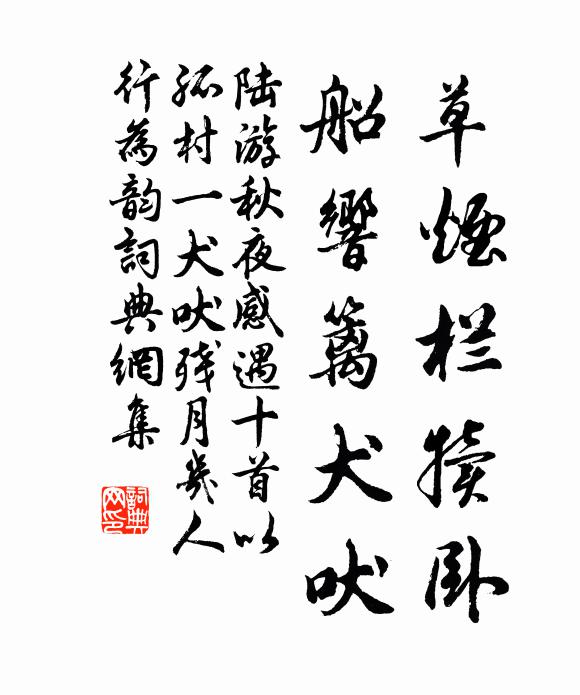 草煙栏犢卧
船響篱犬吠
陆游秋夜感遇十首以
孤村一犬吠残月幾人
行為韵詞典網集
詞典网印